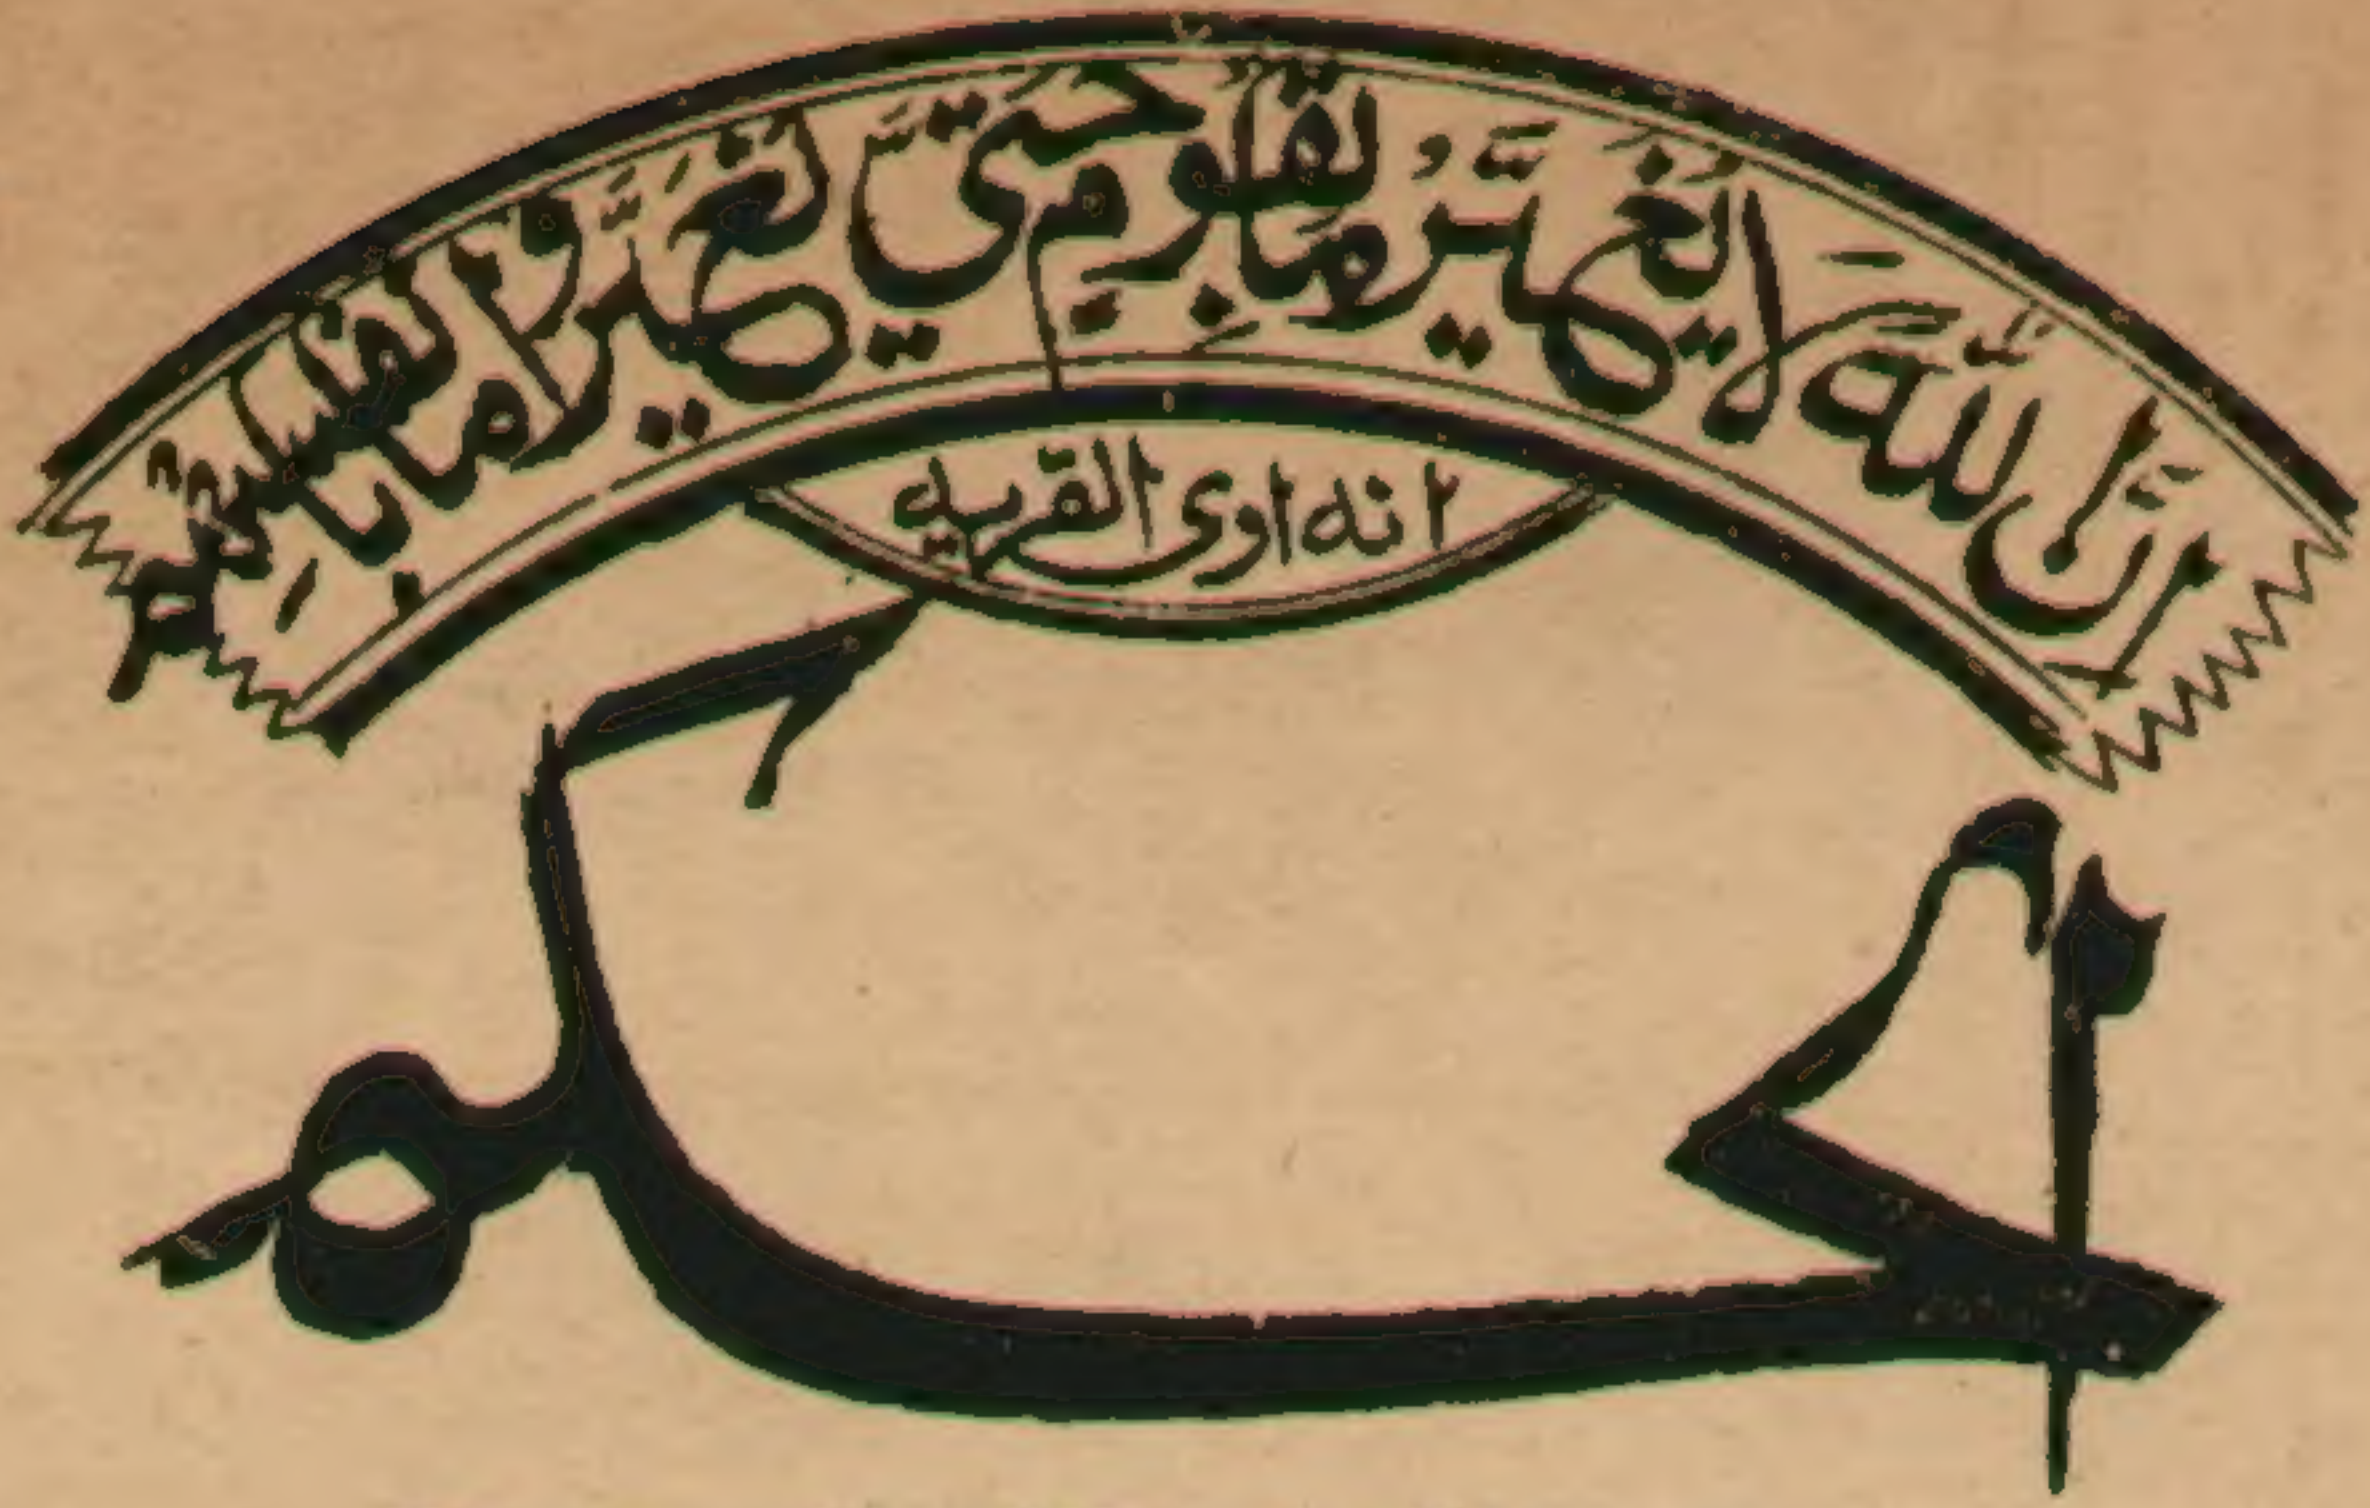 إِنَّ اللّٰهَ لَا يُغَيِّرُ مَا بِقَوْمٍ حَتّٰى يُغَيِّرُوا مَا بِاَنْفُسِهِمْ
انه اوى القريه
الحكم